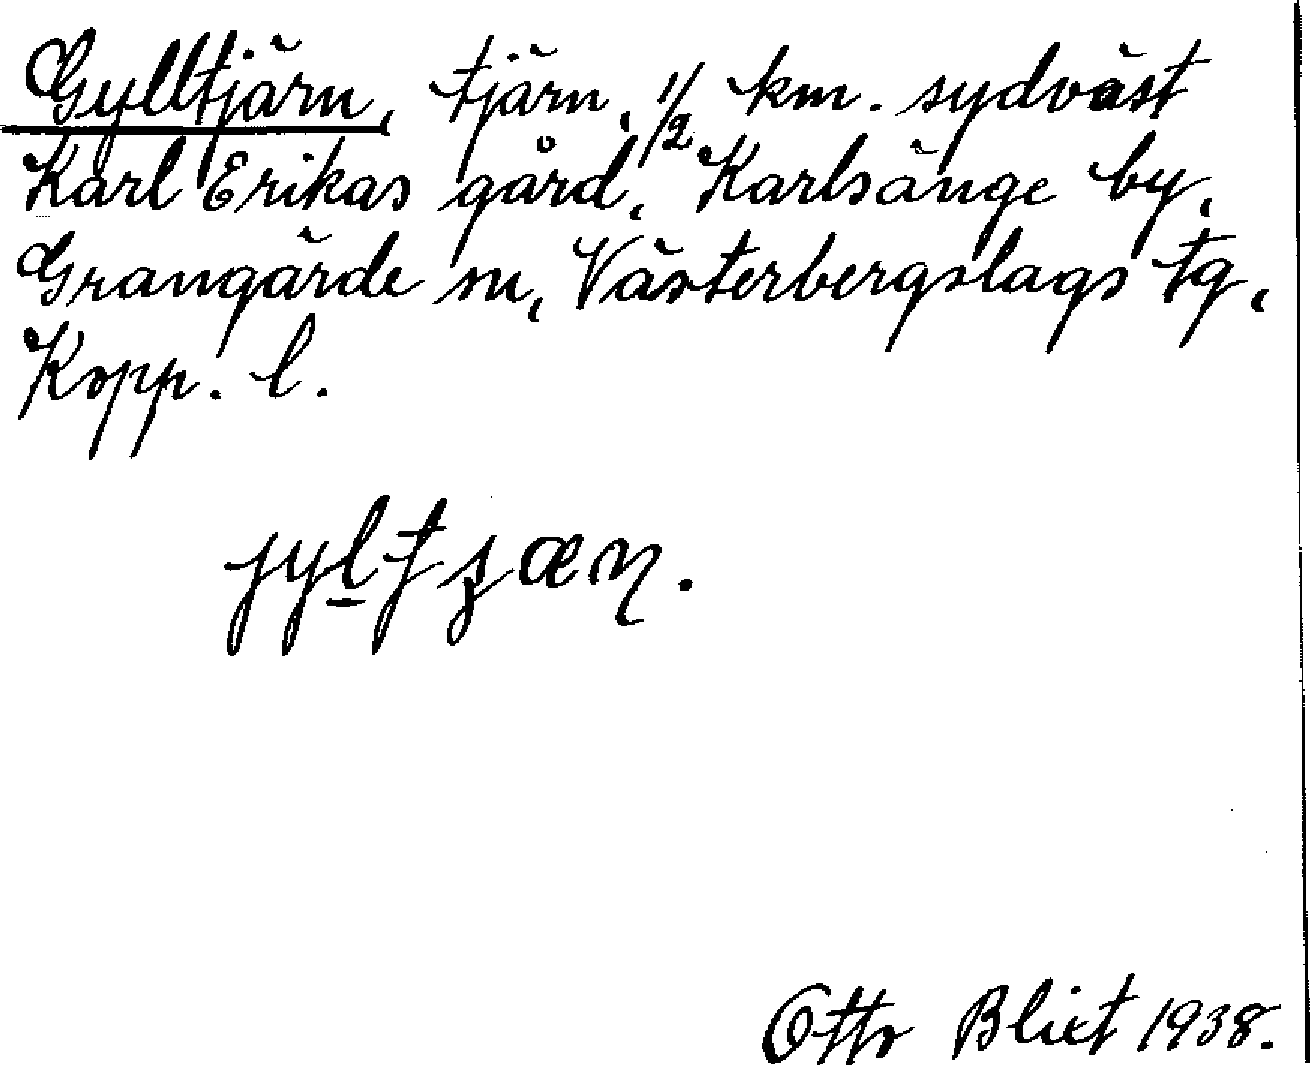 Gylltjärn, tjärn, 1/2 km. sydväst
Karl Erikas gård, Karlsänge by,
Grangärde sn, Västerbergslags tg,
Kopp. l.
Otto Blixt 1938.